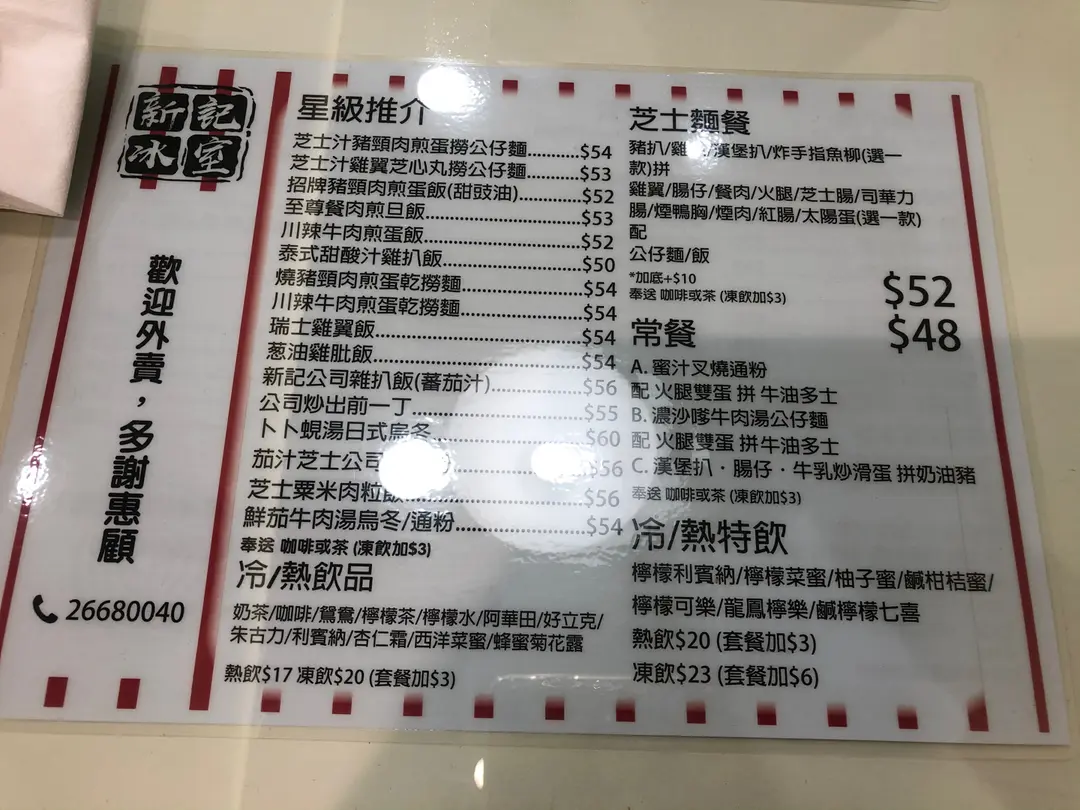 新記
冰室
歡迎外賣，多謝惠顧
26680040
星級推介
芝士汁豬頸肉煎蛋撈公仔麵..........$54
芝士汁雞翼芝心丸撈公仔麵..........$53
招牌豬頸肉煎蛋飯(甜豉油)..........$52
至尊餐肉煎旦飯..........$53
川辣牛肉煎蛋飯..........$52
泰式甜酸汁雞扒飯..........$50
燒豬頸肉煎蛋乾撈麵..........$54
川辣牛肉煎蛋乾撈麵..........$54
瑞士雞翼飯..........$54
葱油雞肶飯..........$54
新記公司雜扒飯(蕃茄汁)..........$56
公司炒出前一丁..........$55
卜卜蜆湯日式烏冬..........$60
茄汁芝士公司 $56
芝士粟米肉粒飯..........$56
鮮茄牛肉湯烏冬/通粉..........$54
奉送 咖啡或茶 (凍飲加$3)
冷/熱飲品
奶茶/咖啡/鴛鴦/檸檬茶/檸檬水/阿華田/好立克/
朱古力/利賓納/杏仁霜/西洋菜蜜/蜂蜜菊花露
熱飲$17 凍飲$20 (套餐加$3)
芝士麵餐
豬扒/雞 /漢堡扒/炸手指魚柳(選一
款)拼
雞翼/腸仔/餐肉/火腿/芝士腸/司華力
腸/煙鴨胸/煙肉/紅腸/太陽蛋(選一款)
配
公仔麵/飯
*加底+$10
奉送 咖啡或茶 (凍飲加$3) $52
常餐 $48
A. 蜜汁叉燒通粉
配 火腿雙蛋 拼 牛油多士
B. 濃沙嗲牛肉湯公仔麵
配 火腿雙蛋 拼 牛油多士
C. 漢堡扒．腸仔．牛乳炒滑蛋 拼奶油豬
奉送 咖啡或茶 (凍飲加$3)
冷/熱特飲
檸檬利賓納/檸檬菜蜜/柚子蜜/鹹柑桔蜜/
檸檬可樂/龍鳳檸樂/鹹檸檬七喜
熱飲$20 (套餐加$3)
凍飲$23 (套餐加$6)